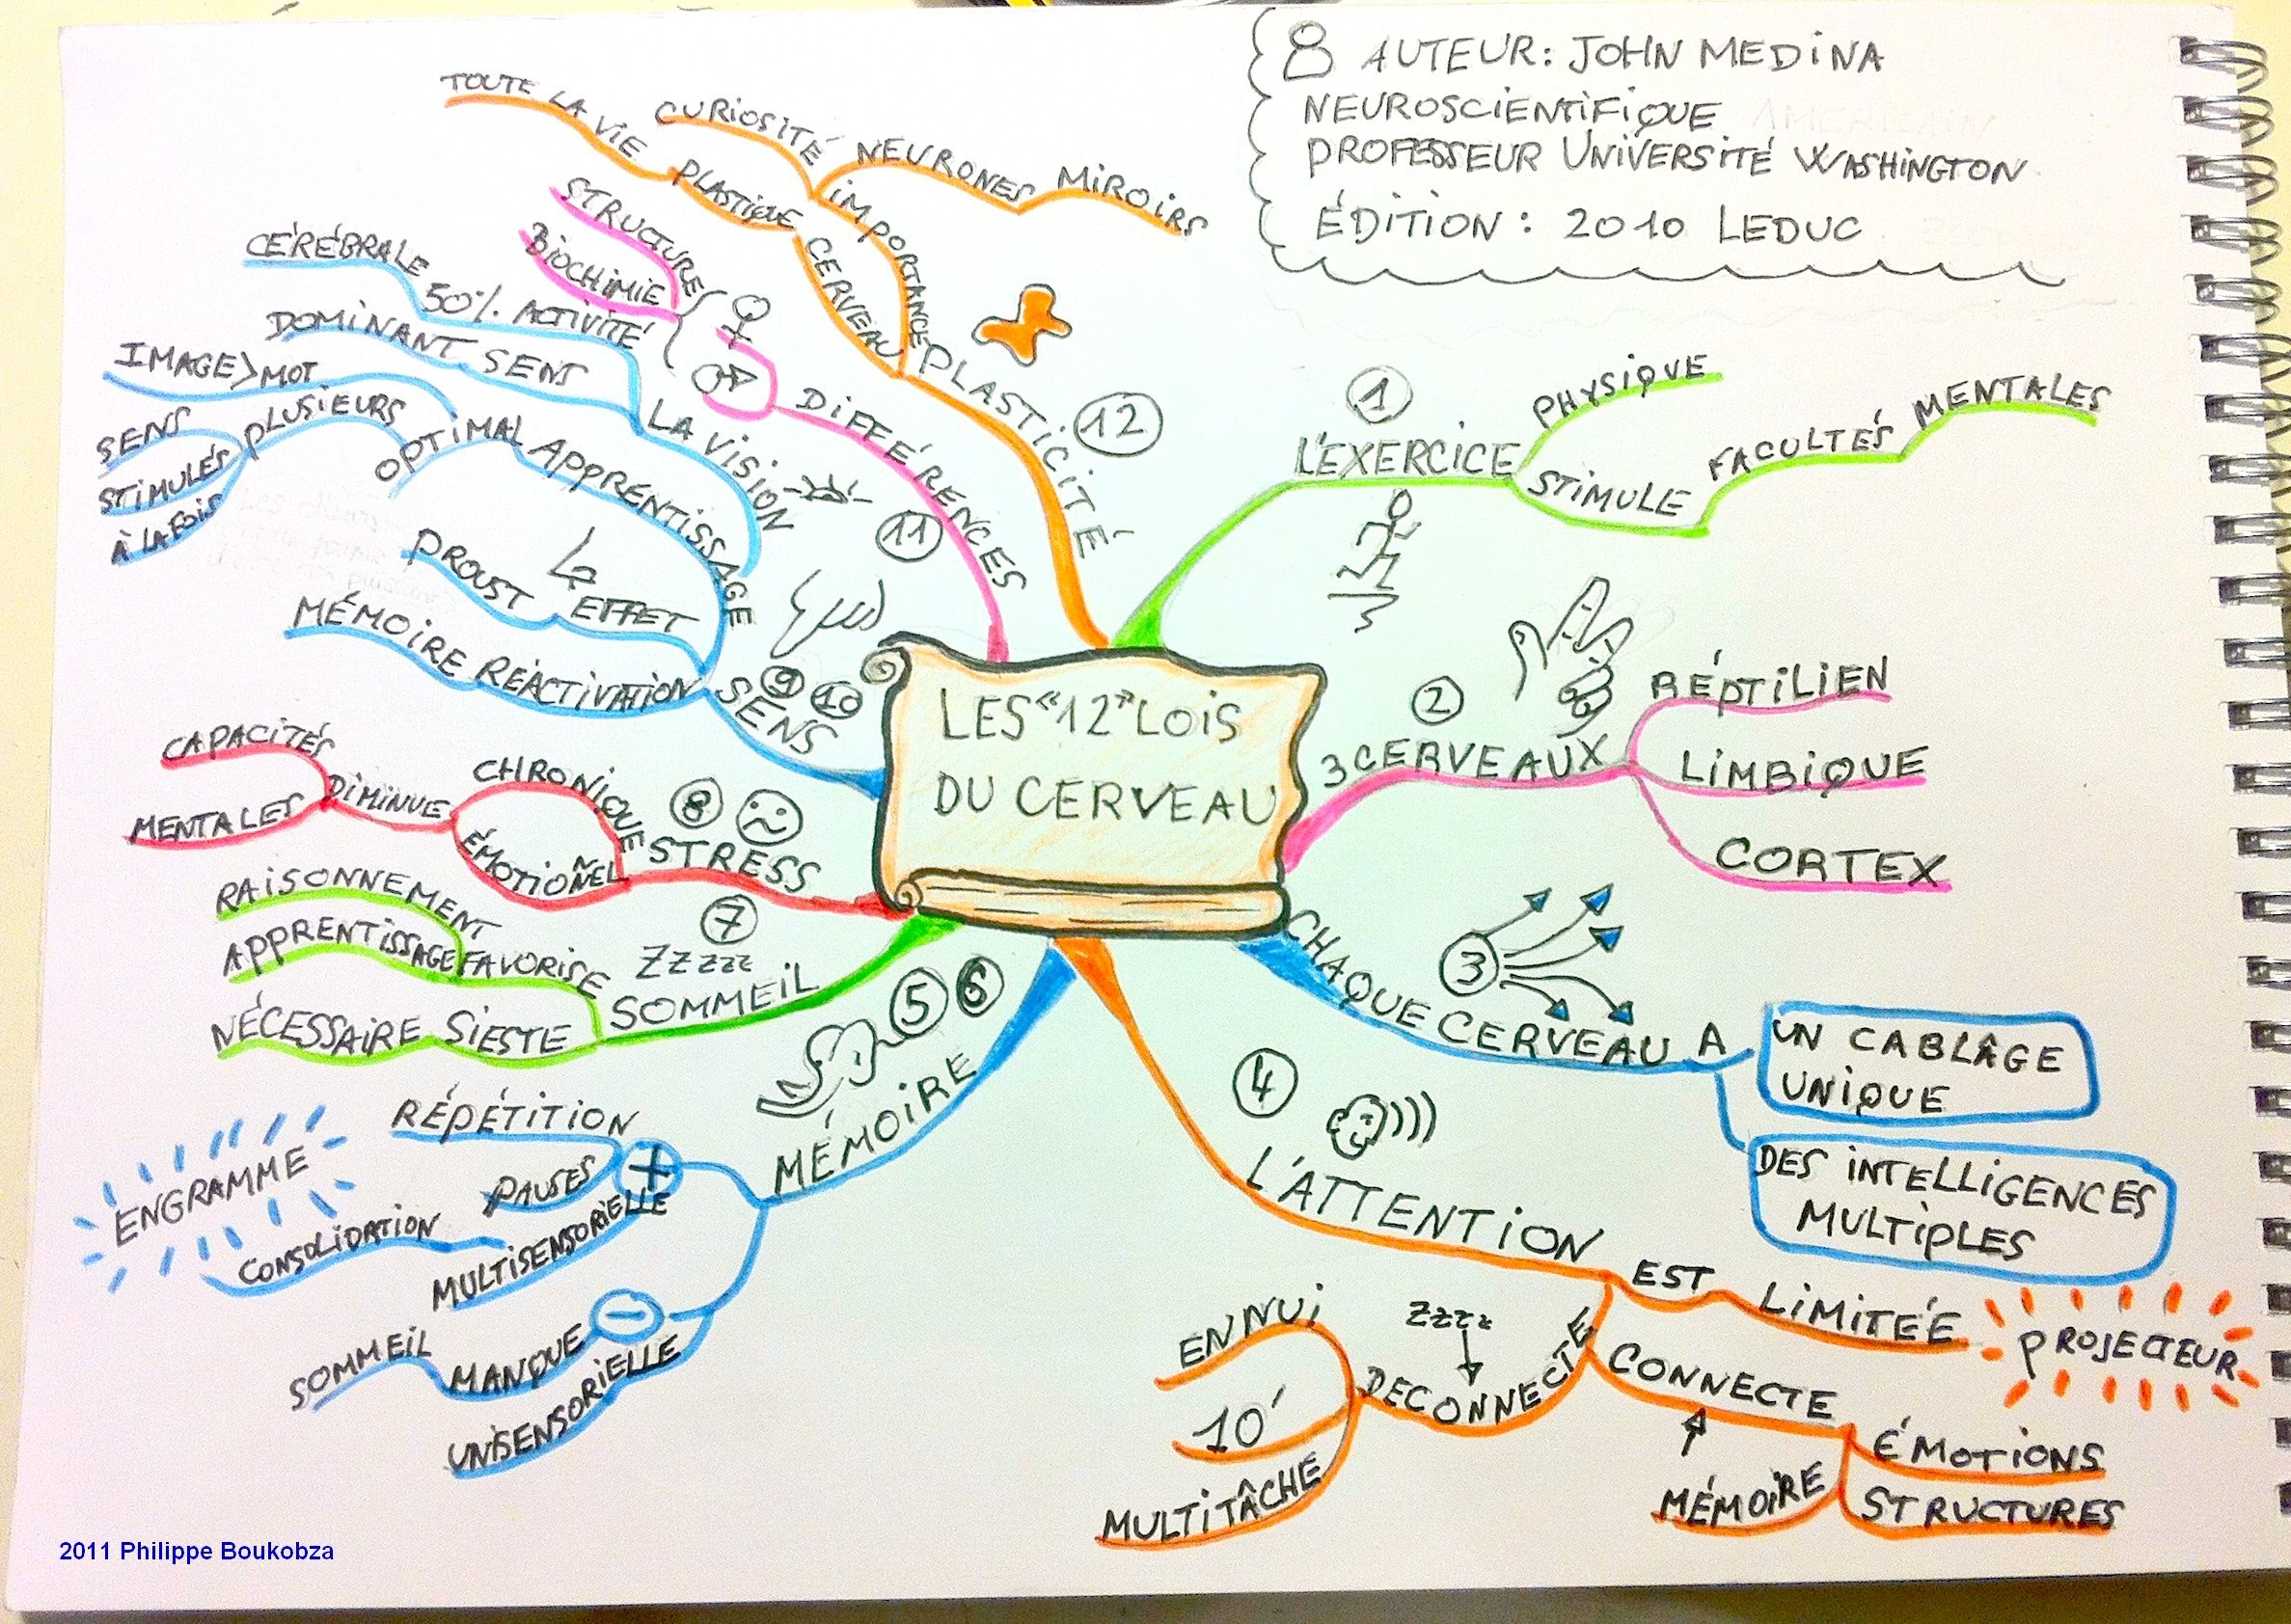 AUTEUR: JOHN MEDINA
NEUROSCIENTIFIQUE
PROFESSEUR UNIVERSITÉ WASHINGTON
ÉDITION: 2010 LEDUC
LES "12" LOIS
DU CERVEAU
1
L'EXERCICE
PHYSIQUE
STIMULE
FACULTÉS
MENTALES
2
3 CERVEAUX
RÉPTILIEN
LIMBIQUE
CORTEX
3
CHAQUE CERVEAU A
UN CABLÂGE
UNIQUE
DES INTELLIGENCES
MULTIPLES
4
L'ATTENTION
EST LIMITÉE
PROJECTEUR
CONNECTE
ÉMOTIONS
STRUCTURES
MÉMOIRE
ZZZZ
DECONNECTE
ENNUI
10'
MULTITÂCHE
5 6
MÉMOIRE
+
RÉPÉTITION
PAUSES
MULTISENSORIELLE
CONSOLIDATION
ENGRAMME
-
MANQUE
SOMMEIL
UNISENSORIELLE
7
ZZZZZ
SOMMEIL
FAVORISE
RAISONNEMENT
APPRENTISSAGE
SIESTE
NÉCESSAIRE
8
STRESS
CHRONIQUE
ÉMOTIONÑEL
DIMINUE
CAPACITÉS
MENTALES
9 10
SENS
RÉACTIVATION
MÉMOIRE
EFFET
PROUST
APPRENTISSAGE
OPTIMAL
PLUSIEURS
SENS
STIMULÉS
À LA FOIS
IMAGE>MOT
LA VISION
SENS
DOMINANT
50% ACTIVITÉ
CÉRÉBRALE
11
DIFFÉRENCES
STRUCTURE
BIOCHIMIE
12
PLASTICITÉ
CERVEAU
PLASTIQUE
TOUTE LA VIE
IMPORTANCE
CURIOSITÉ
NEURONES
MIROIRS
2011 Philippe Boukobza